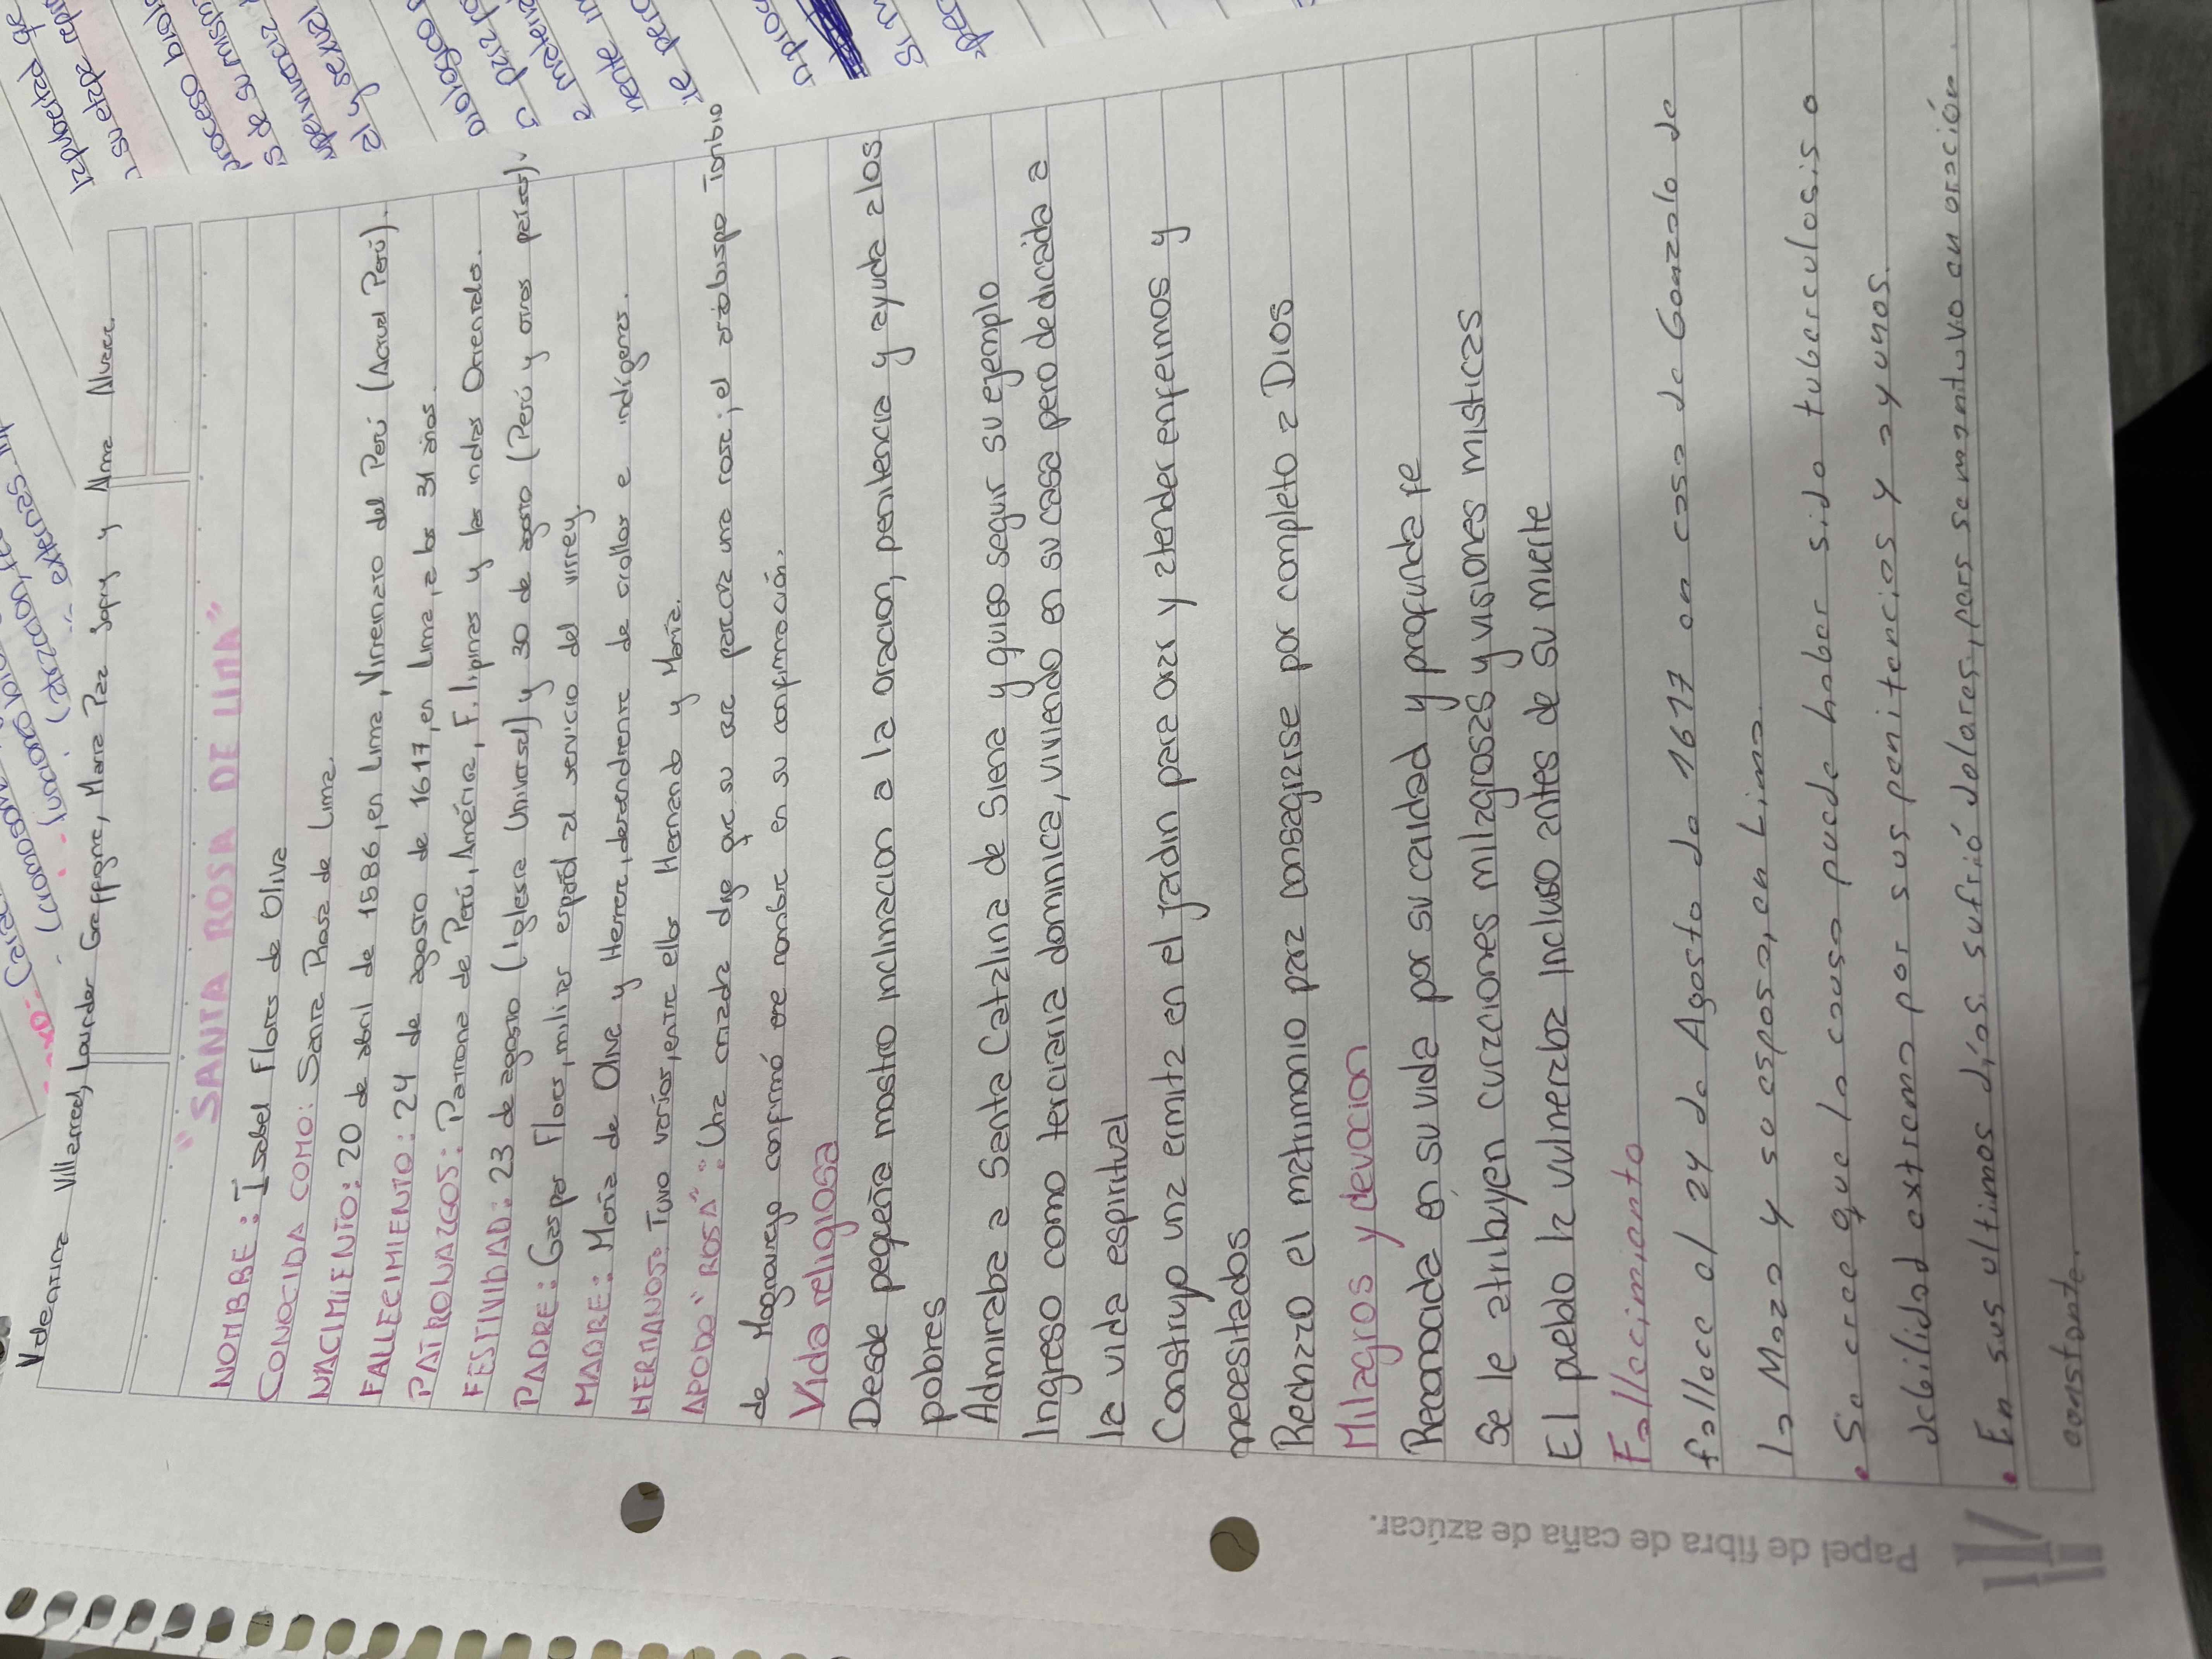 Valentina Villarreal, Lourdes Graffigna, Maria Paz Sapag y Alma Alvarez.
"SANTA ROSA DE LIMA"
NOMBRE: Isabel Flores de Oliva
CONOCIDA COMO: Santa Rosa de Lima.
NACIMIENTO: 20 de abril de 1586, en Lima, Virreinato del Perú (Actual Perú).
FALLECIMIENTO: 24 de agosto de 1617, en Lima, a los 31 años.
PATRONAZGOS: Patrona de Perú, América, Filipinas y las indias Orientales.
FESTIVIDAD: 23 de agosto (Iglesia Universal) y 30 de agosto (Perú y otros países).
PADRE: Gaspar Flores, militar español al servicio del virrey.
MADRE: María de Oliva y Herrera, descendiente de criollos e indígenas.
HERMANOS: Tuvo varios, entre ellos Hernando y María.
APODO "ROSA": Una criada dijo que su cara parecía una rosa; el arzobispo Toribio
de Mogrovejo confirmó ese nombre en su confirmación.
Vida religiosa
Desde pequeña mostro inclinacion a la oracion, penitencia y ayuda a los
pobres
Admiraba a Santa Catalina de Siena y quiso seguir su ejemplo
Ingreso como terciaria dominica, viviendo en su casa pero dedicada a
la vida espiritual
Construyo una ermita en el jardin para orar y atender enfermos y
necesitados
Rechazo el matrimonio para consagrarse por completo a Dios
Milagros y devocion
Reconocida en su vida por su caridad y profunda fe
Se le atribuyen curaciones milagrosas y visiones misticas
El pueblo la vulneraba incluso antes de su muerte
Fallecimiento
fallece el 24 de Agosto de 1617 en casa de Gonzalo de
la Maza y su esposa, en Lima.
• Se cree que la causa puede haber sido tuberculosis o
debilidad extrema por sus penitencias y ayunos.
• En sus ultimos días sufrió dolares, pars se mantuvo en oración
constante.
Papel de fibra de caña de azúcar.